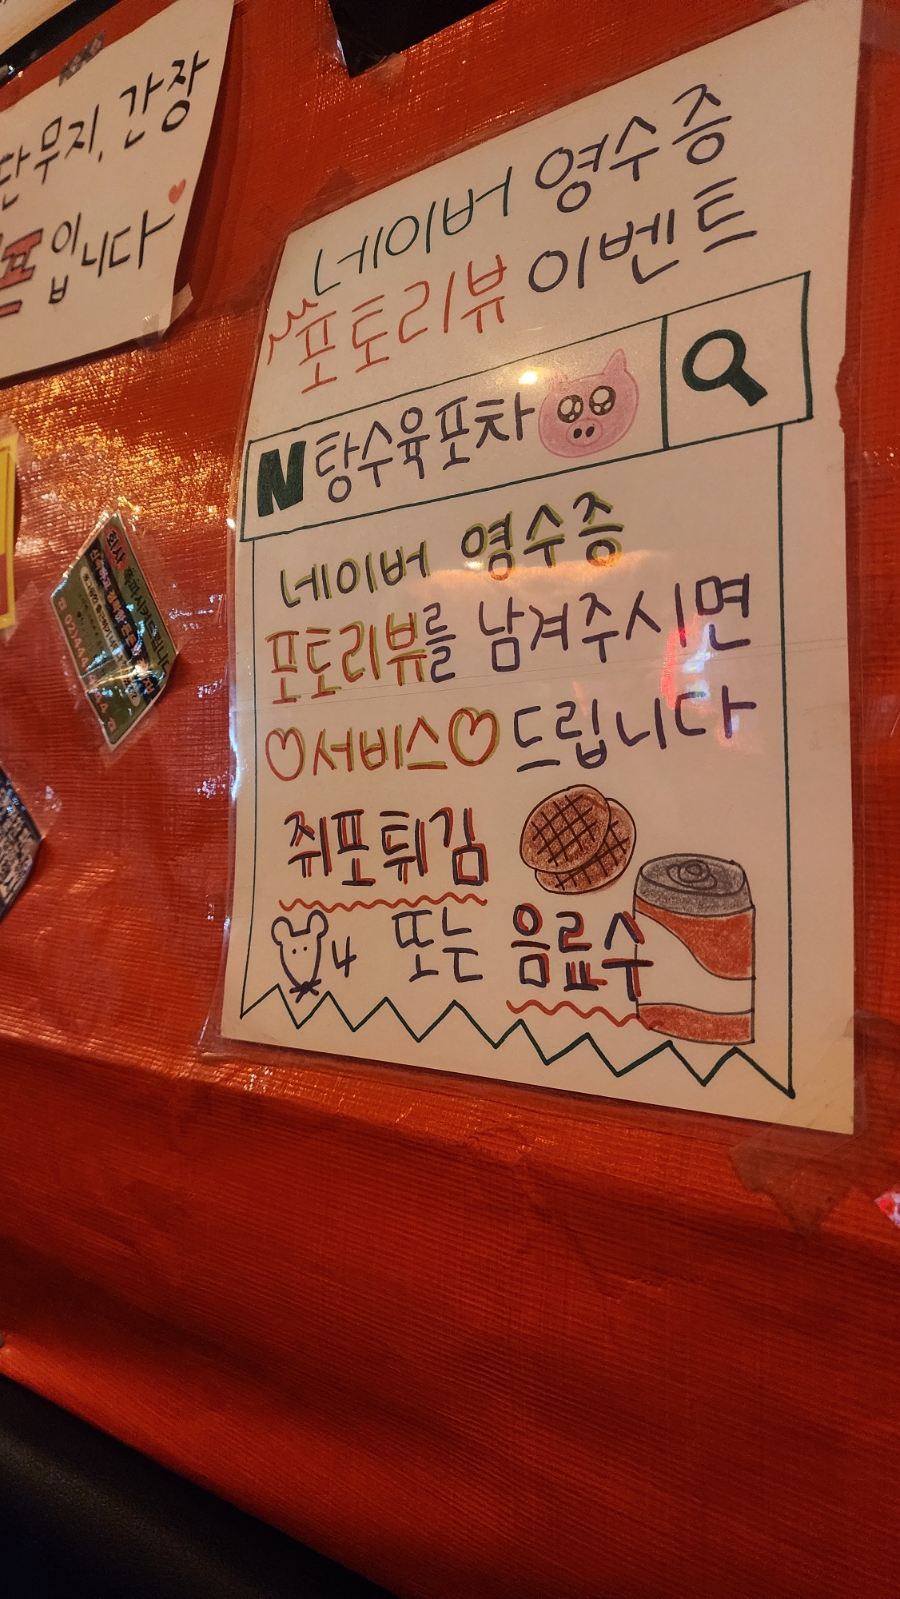 단무지, 간장
입니다~
네이버 영수증
포토리뷰 이벤트
N 탕수육포차
네이버 영수증
포토리뷰를 남겨주시면
♡서비스♡ 드립니다
쥐포튀김
또는 음료수